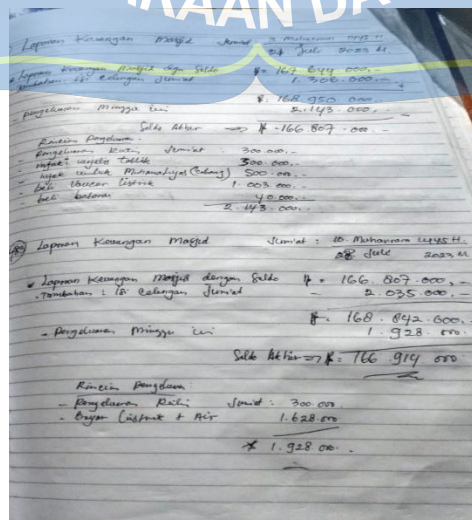 RAAN DA
Laporan Keuangan Masjid Jum'at 3 Muharram 1445 H.
21 Juli 2023 M.
Laporan Keuangan Masjid dgn Saldo Rp 167.644.000,-
Tambahan: Isi celengan Jum'at 1.306.000,-
Rp. 168.950.000,-
pengeluaran minggu ini 2.143.000,-
Saldo Akhir => Rp 166.807.000,-
Rincian Pengeluaran:
- Pengeluaran Rutin Jum'at 300.000,-
300.000,-
- infak untuk Muhamadiyah (cabang) 500.000,-
- beli Voucer Listrik 1.003.000
- beli baterai 40.000,-
2.143.000,-
Laporan Keuangan Masjid Jum'at: 10 Muharram 1445 H.
28 Juli 2023 M
Laporan Keuangan Masjid dengan Saldo Rp = 166.807.000,-
- Tambahan: Isi celengan Jum'at - 2.035.000,-
Rp. 168.842.000,-
- Pengeluaran Minggu ini 1.928.000
Saldo Akhir => Rp = 166.914.000
Rincian Pengeluaran:
- Pengeluaran Rutin Jum'at: 300.000
- Bayar Listrik + Air 1.628.000
Rp 1.928.000,-